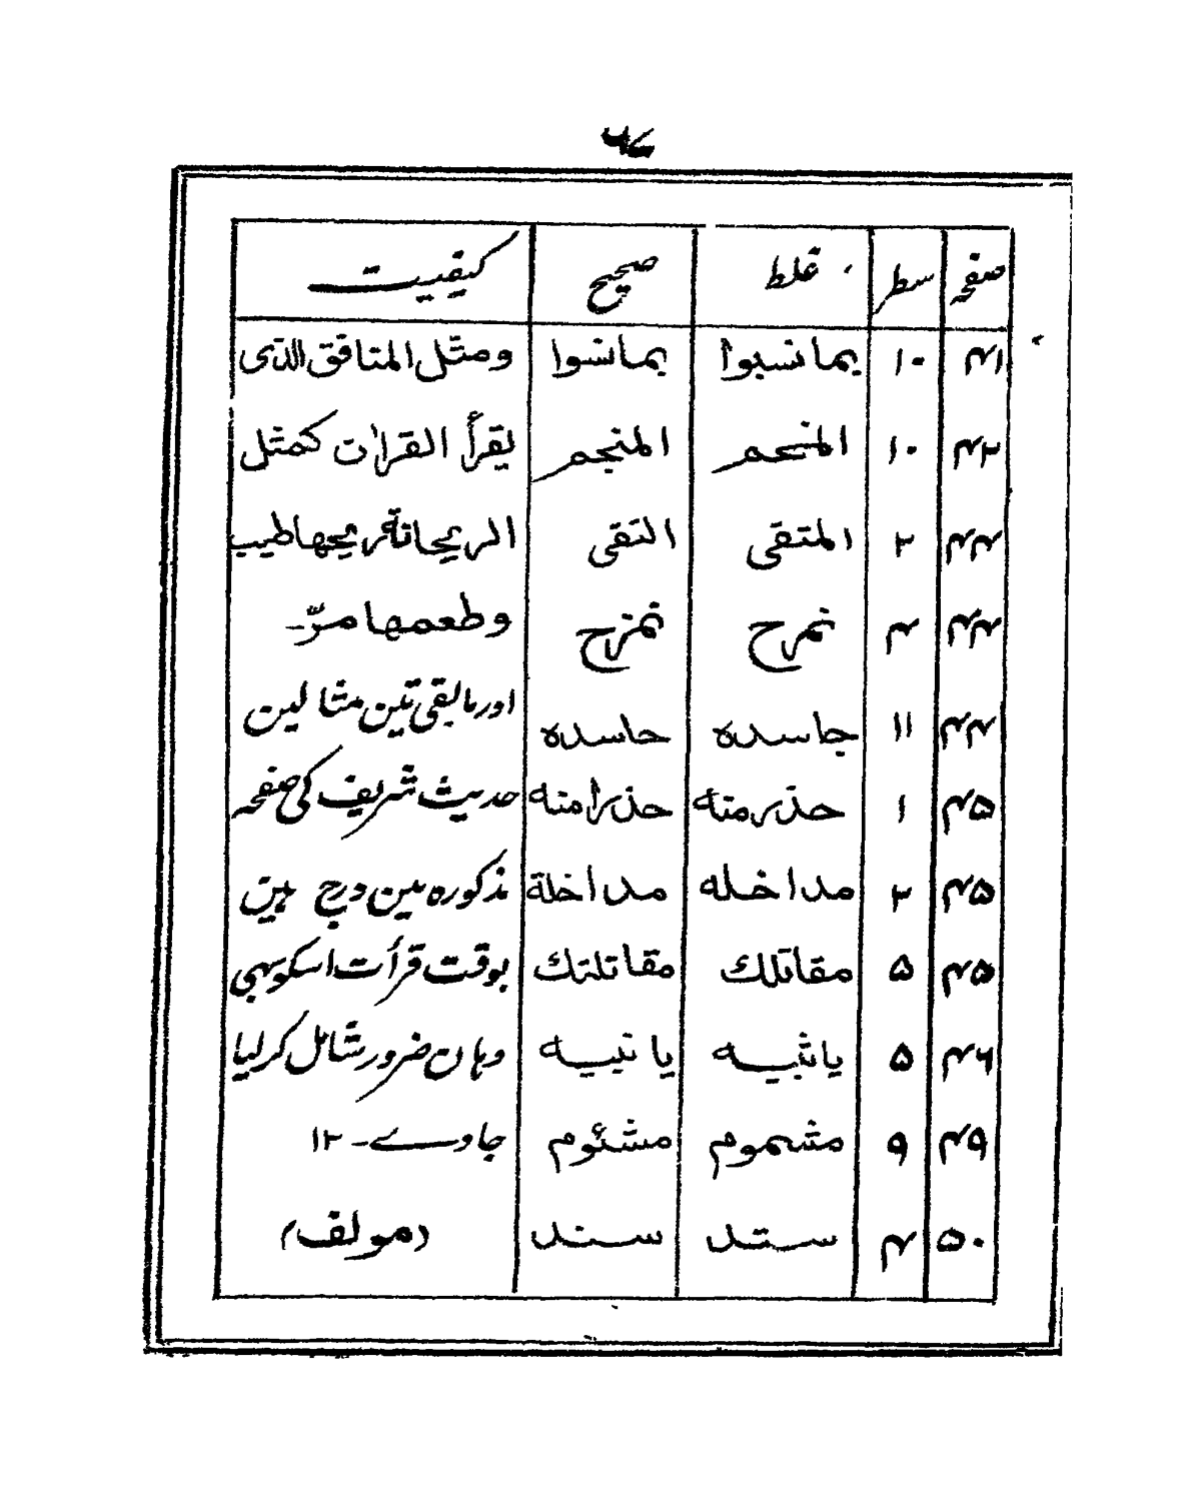 صفحہ سطر غلط صحیح کیفیت
۴۱ ۱۰ بمانسبوا بمانسوا ومثل المنافق الذی
۴۲ ۱۰ المنحم المنجم یقرأ القراٰن کمثل
۴۴ ۲ المتقی التقی الریحانة ریحها طیب
۴۴ ۴ تمرح تمزح وطعمها مرّ۔
۴۴ ۱۱ جاسده حاسده اور مابقی تین مثالین
۴۵ ۱ حذر منه حذرا منه حدیث شریف کی صفحہ
۴۵ ۲ مداخله مداخلة مذکورہ مین درج ہین
۴۵ ۵ مقاتلك مقاتلتك بوقت قرأت اسکوبھی
۴۶ ۵ یاثبیه یاتیه وہان ضرور شامل کرلیا
۴۹ ۹ مشموم مشئوم جاوے۔ ۱۲
۵۰ ۴ ستد سند (مولف)